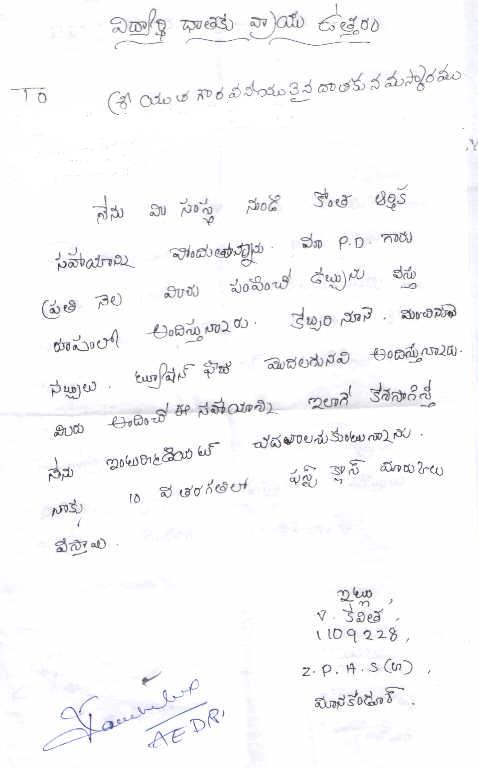 విద్యార్థి దాతకు వ్రాయు ఉత్తరం
To
శ్రీ యుత గౌరవనీయులైన దాతకు నమస్కారము
నేను మీ సంస్థ నుండి కొంత ఆర్థిక
సహాయాన్ని పొందుతున్నాను. మా P.D. గారు
ప్రతి నెల మీరు పంపించే డబ్బును వస్తు
రూపంలో అందిస్తున్నారు. కొబ్బరి నూనె. మంచినూనె
సబ్బులు. ట్యూషన్ ఫీజు మొదలగునవి అందిస్తున్నారు.
మీరు అందించే ఈ సహాయాన్ని ఇలాగే కొనసాగిస్తే
నేను ఇంటర్మీడియట్ చదవాలనుకుంటున్నాను.
నాకు 10 వ తరగతిలో ఫస్ట్ క్లాస్ మారుకులు
వస్తాయి.
ఇట్లు,
V. కవిత,
1109228,
Z.P.H.S(),
మానకొండూర్.
AEDP.